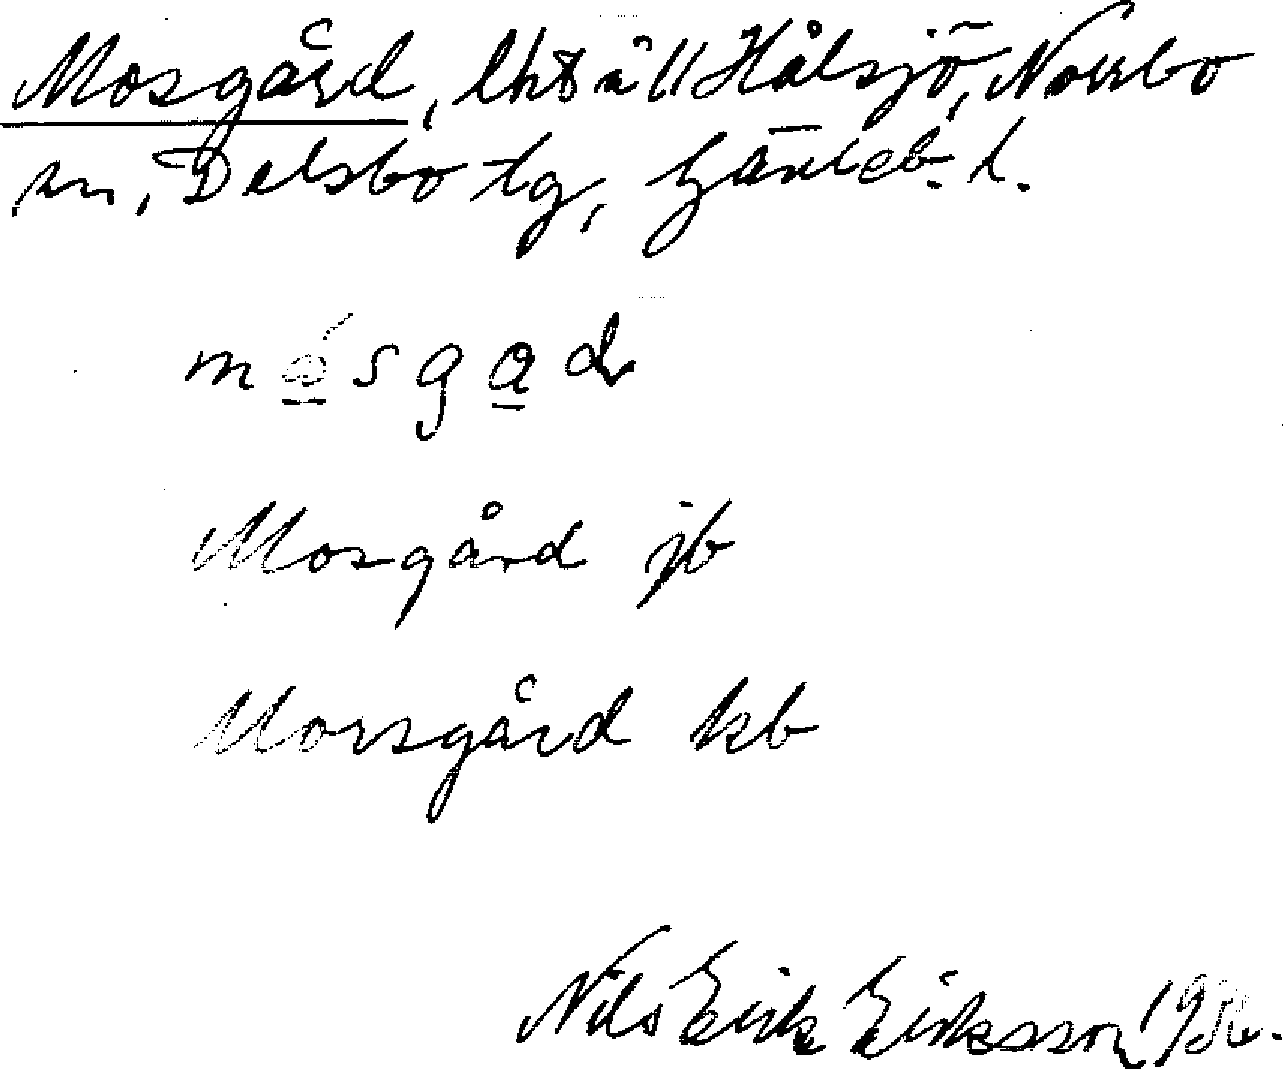 Mosgård, lht till Hålsjö, Norrbo
sn, Delsbo tg, Gävleb. l.
Mosgård jb
Morsgård kb
Nils Erik Eriksson